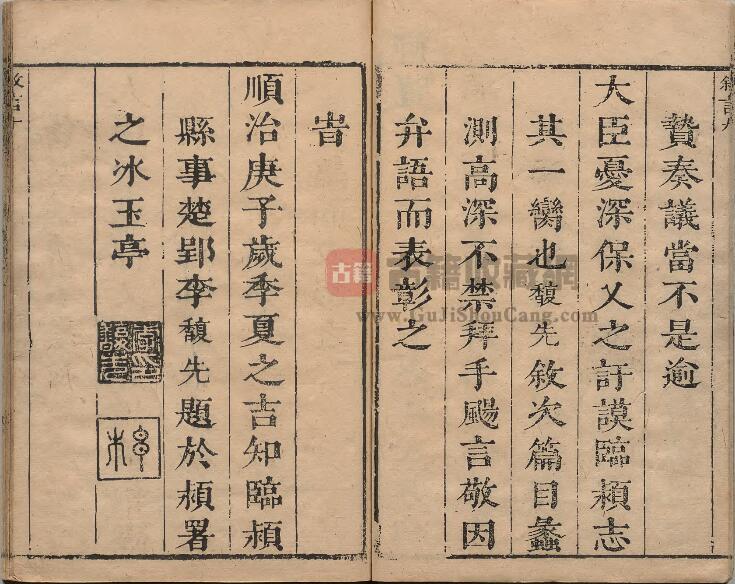 贄奏議當不是逾
大臣憂深保乂之訏謨臨潁志
其一臠也馥先敘次篇目蠡
測高深不禁拜手颺言敬因
弁語而表彰之
旹
順治庚子歲季夏之吉知臨潁
縣事楚郢李馥先題於潁署
之冰玉亭
古籍 古籍收藏網
www.GuJiShouCang.com